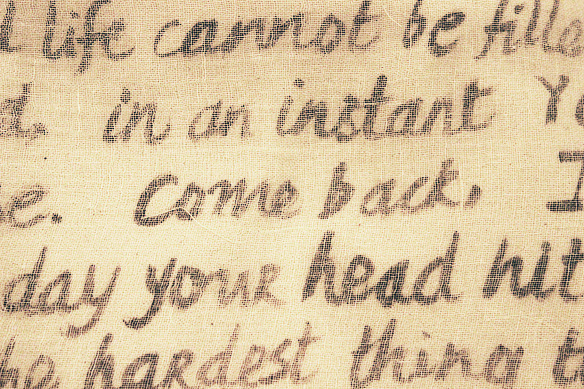 life cannot be fille
d. in an instant Yo
e. Come back, I
day your head hit
he hardest thing t